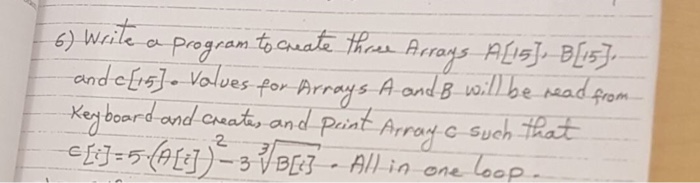 6) Write a program to create three Arrays A[15], B[15],
and c[15]. Values for Arrays A and B will be read from
Keyboard and create, and print Array c such that
c[i] = 5·(A[i])² - 3 ∛B[i] . All in one loop.